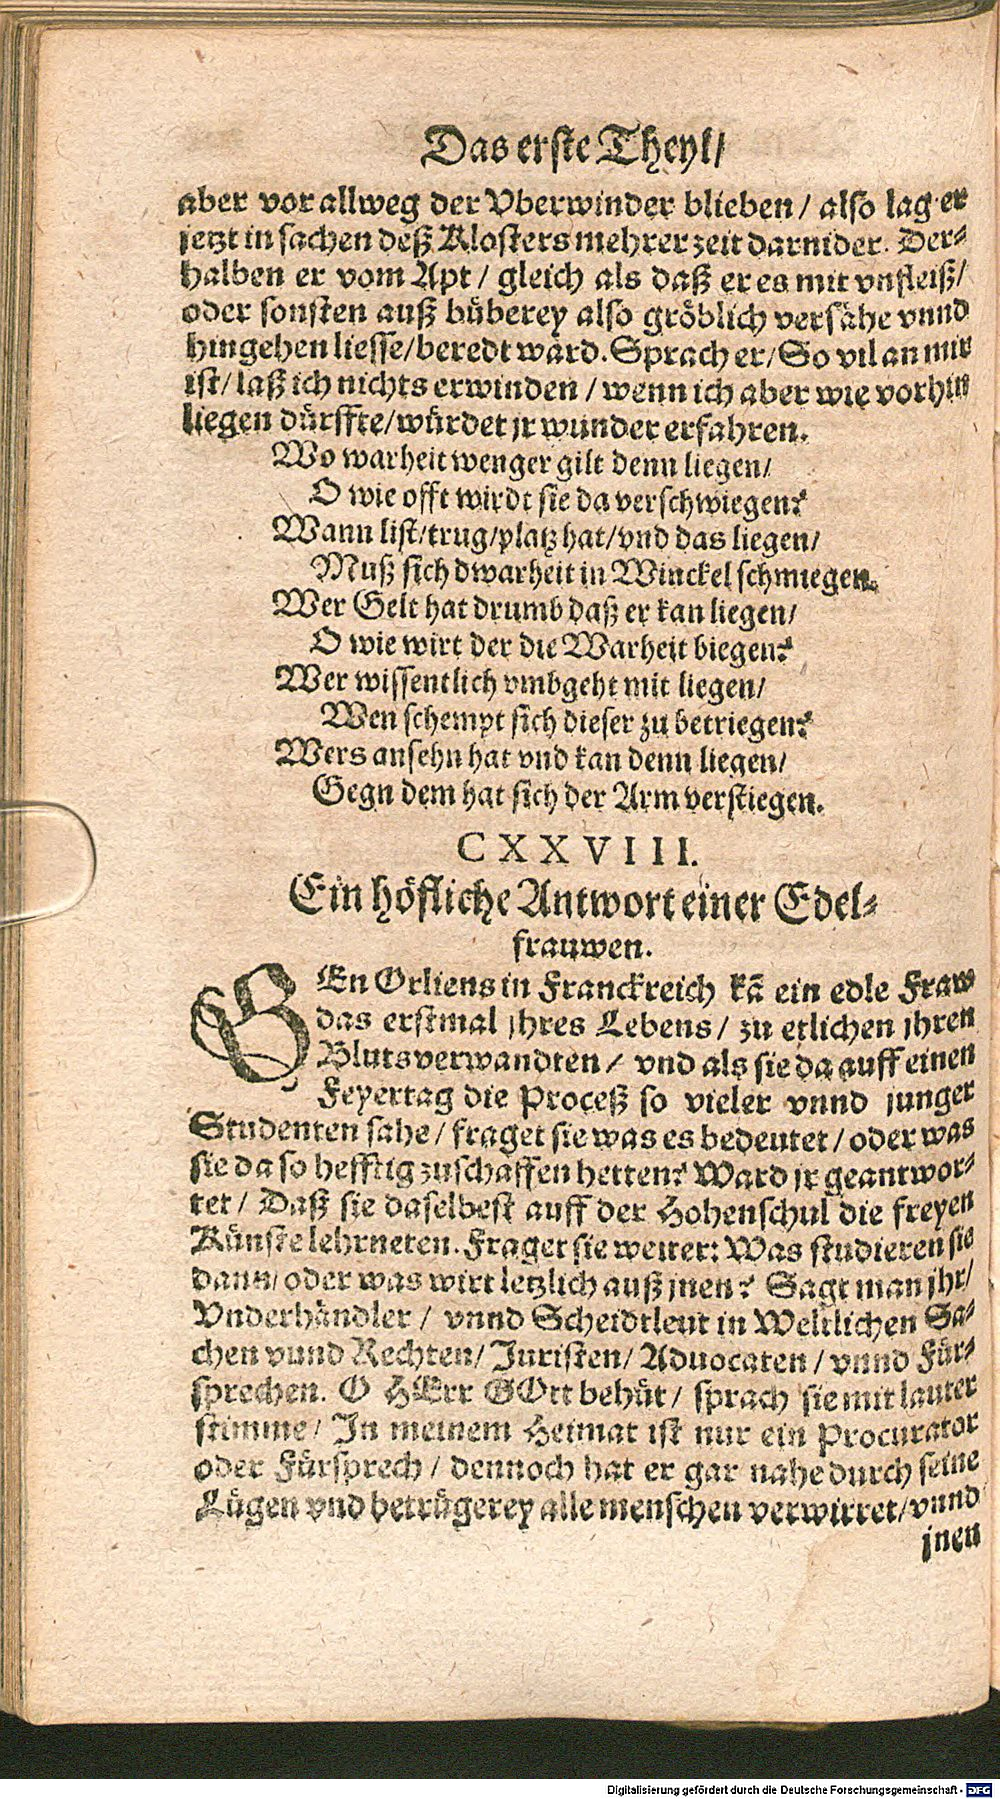 Das erste Theyl/
aber vor allweg der Vberwinder blieben / also lag er
jetzt in sachen deß Klosters mehrer zeit darnider. Der⸗
halben er vom Apt / gleich als daß er es mit vnfleiß/
oder sonsten auß büberey also gröblich versähe vnnd
hingehen liesse/beredt ward. Sprach er/So vil an mir
ist/ laß ich nichts erwinden / wenn ich aber wie vorhin
liegen dürffte/würdet jr wunder erfahren.
Wo warheit wenger gilt denn liegen/
O wie offt wirdt sie da verschwiegen?
Wann list/trug/platz hat/vnd das liegen/
Muß sich dwarheit in Winckel schmiegen.
Wer Gelt hat drumb daß er kan liegen/
O wie wirt der die Warheit biegen?
Wer wissentlich vmbgeht mit liegen/
Wen schempt sich dieser zu betriegen?
Wers ansehn hat vnd kan denn liegen/
Gegn dem hat sich der Arm verstiegen.
CXXVIII.
Ein höfliche Antwort einer Edel⸗
frauwen.
GEn Orliens in Franckreich kã ein edle Fraw
das erstmal jhres Lebens / zu etlichen jhren
Blutsverwandten / vnd als sie da auff einen
Feyertag die Proceß so vieler vnnd junger
Studenten sahe / fraget sie was es bedeutet / oder was
sie da so hefftig zuschaffen hetten? Ward jr geantwor⸗
tet / Daß sie daselbest auff der Hohenschul die freyen
Künste lehrneten. Fraget sie weiter: Was studieren sie
dann/ oder was wirt letzlich auß jnen? Sagt man jhr/
Vnderhändler / vnnd Scheidtleut in Weltlichen Sa⸗
chen vnnd Rechten/ Juristen/ Aduocaten / vnnd Für⸗
sprechen. O HErr GOtt behüt / sprach sie mit lauter
stimme / In meinem Heimat ist nur ein Procurator
oder Fürsprech / dennoch hat er gar nahe durch seine
Lügen vnd betrügerey alle menschen verwirret/vnnd
jnen
Digitalisierung gefördert durch die Deutsche Forschungsgemeinschaft - DFG